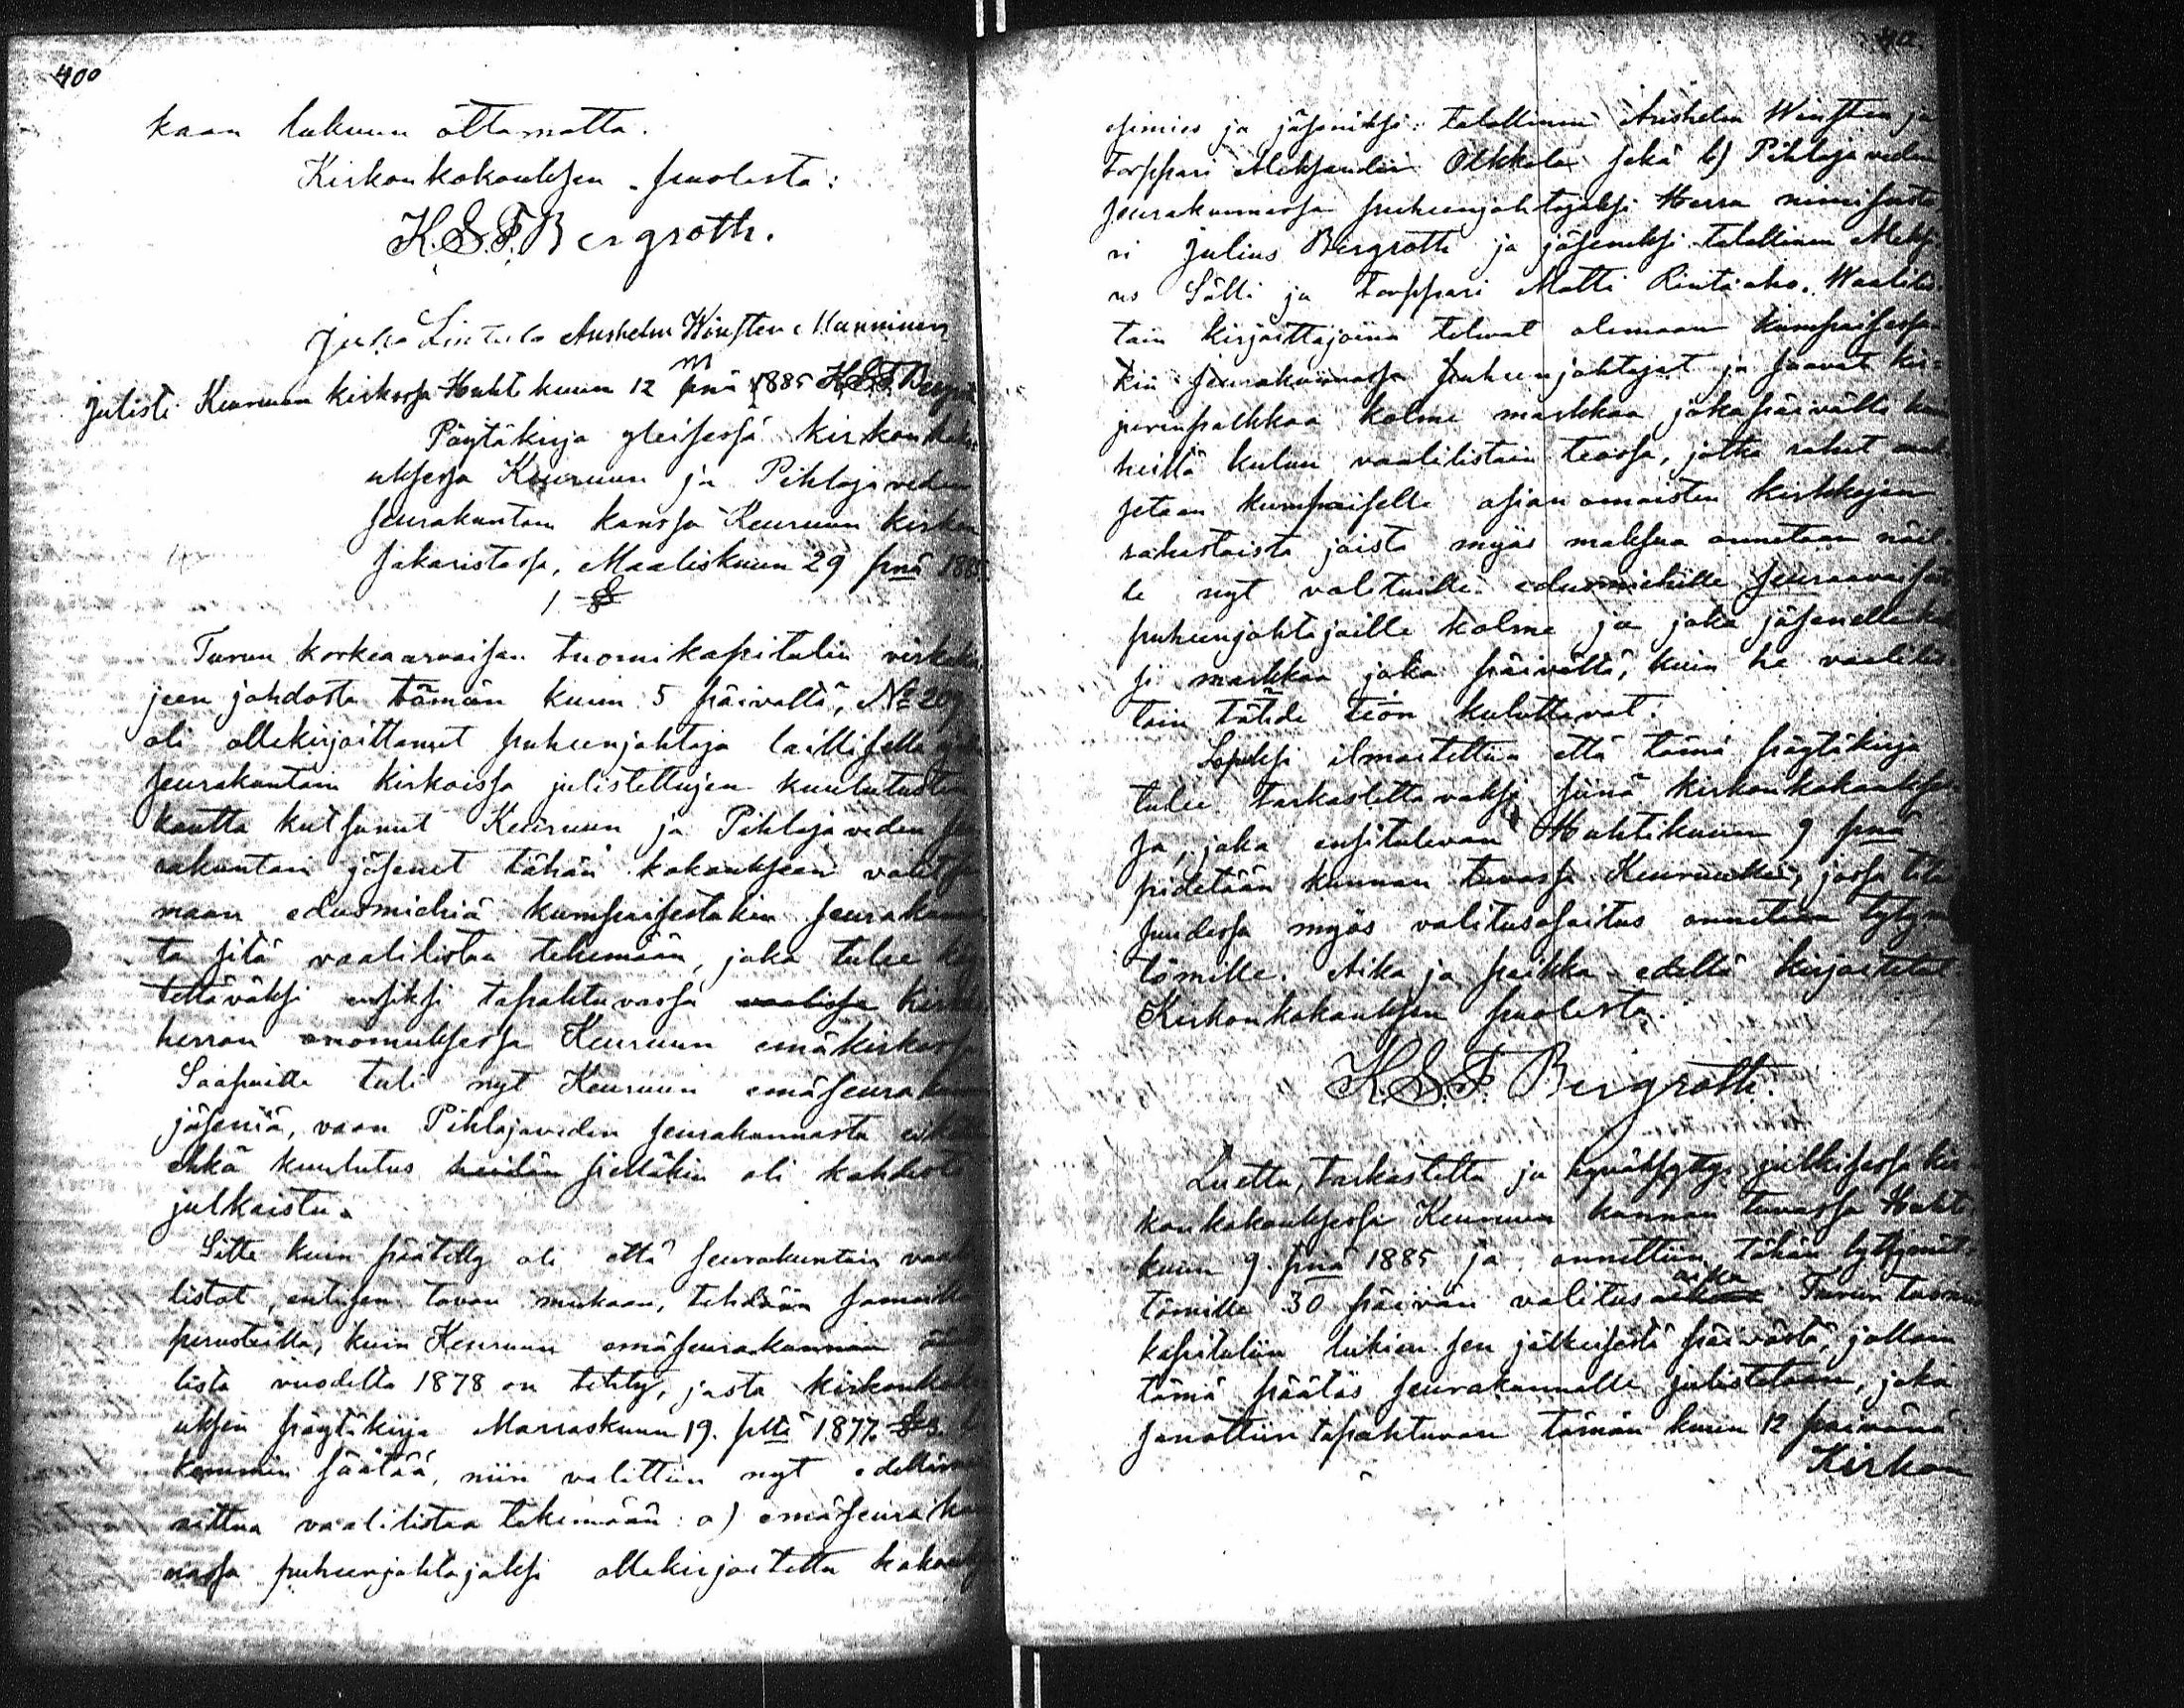 400
kaan lukuun ottamatta.
Kirkonkokouksen puolesta:
K.S.F. Bergroth.
Juha Lintula Anshelm Winsten Manninen
m
Julisti Keuruun kirkossa Huhtikuun 12 pnä 1885 K.S.F. Bergr
Pöytäkirja yleisessä kirkonkoko
uksessa Keuruun ja Pihlajaveden
seurakuntain kanssa Keuruun kirkon
sakaristossa, Maaliskuun 29 pnä 1885.
1 §
Turun korkeaarvoisan tuomikapitulin virkakir
jeen johdosta tämän kuun 5 päivältä, № 209
oli allekirjoittanut puheenjohtaja laillisella
seurakuntain kirkoissa julistettujen kuulutusten
kautta kutsunut Keuruun ja Pihlajaveden seu
rakuntain jäsenet tähän kokoukseen valitse
maan edusmiehiä kumpaisestakin seurakunnas
ta sitä vaalilistaa tekemään, joka tulee
tettäväksi ensiksi tapahtuvassa vaalissa kirkko
herran anomuksessa Keuruun emäkirkossa
Saapuille tuli nyt Keuruun emäseurakunnan
jäseniä, vaan Pihlajaveden seurakunnasta
ehkä kuulutus heidän sielläkin oli kahdesti
julkaistu.
Sitte kuin päätetty oli että seurakuntain vaali
listat, entisen tavan mukaan, tehdään samoilla
perusteilla, kuin Keuruun emäseurakunnan
lista vuodelta 1878 on tehty, josta kirkonkoko
uksen pöytäkirja Marraskuun 19. pltä 1877 § 3.
kemmin säätää, niin valittiin nyt edellämai
nittua vaalilistaa tekemään: a) emäseurakun
nassa puheenjohtajaksi allekirjoitettu kokouksen
esimies ja jäseniksi: talollinen Anshelm Winsten ja
torppari Aleksander Olkkola sekä b) Pihlajaveden
seurakunnassa puheenjohtajaksi Herra nimismies
ri Julius Bergroth ja jäseneksi talollinen
us Sälli ja torppari Matti Rintaaho. Vaalilis
tain kirjoittajoina tulevat olemaan kumpaisessa
kin seurakunnassa puheenjohtajat ja saavat kir=
jurinpalkkaa kolme markkaa jokapäivältä kuin
heillä kuluu vaalilistain teossa, jotka rahat mak
setaan kumpaiselle asianomaisten kirkkojen
rahastoista joista myös maksua annetaan näil=
le nyt valituille edusmiehille seuraavaisesti
puheenjohtajaille kolme ja joka jäsenelle kak
si markkaa joka päivältä, kuin he vaalilis
tain tähde työn kuluttavat.
Lopuksi ilmoitettiin että tämä pöytäkirja
tulee tarkastettavaksi siinä kirkonkokoukses
sa, joka ensitulevan Huhtikuun 9 pnä
pidetään kunnan tuvassa Keuruulla, jossa tilai
suudessa myös valitusosoitus annetaan tytymät
tömille. Aika ja paikka edellä kirjoitetut
Kirkonkokouksen puolesta.
K.S.F. Bergroth.
Luettu, tarkastettu ja hyväksytty julkisessa kir
konkokouksessa Keuruun kunnan tuvassa Huhti
kuun 9. pnä 1885 ja annettiin tähän tytymät
tömille 30 päivän valitusaika Turun tuomio
kapituliin lukien sen jälkeisestä päivästä, jolloin
tämä päätös seurakunnalle julistetaan, joka
sanottiin tapahtuvan tämän kuun 12 päivänä.
Kirkon